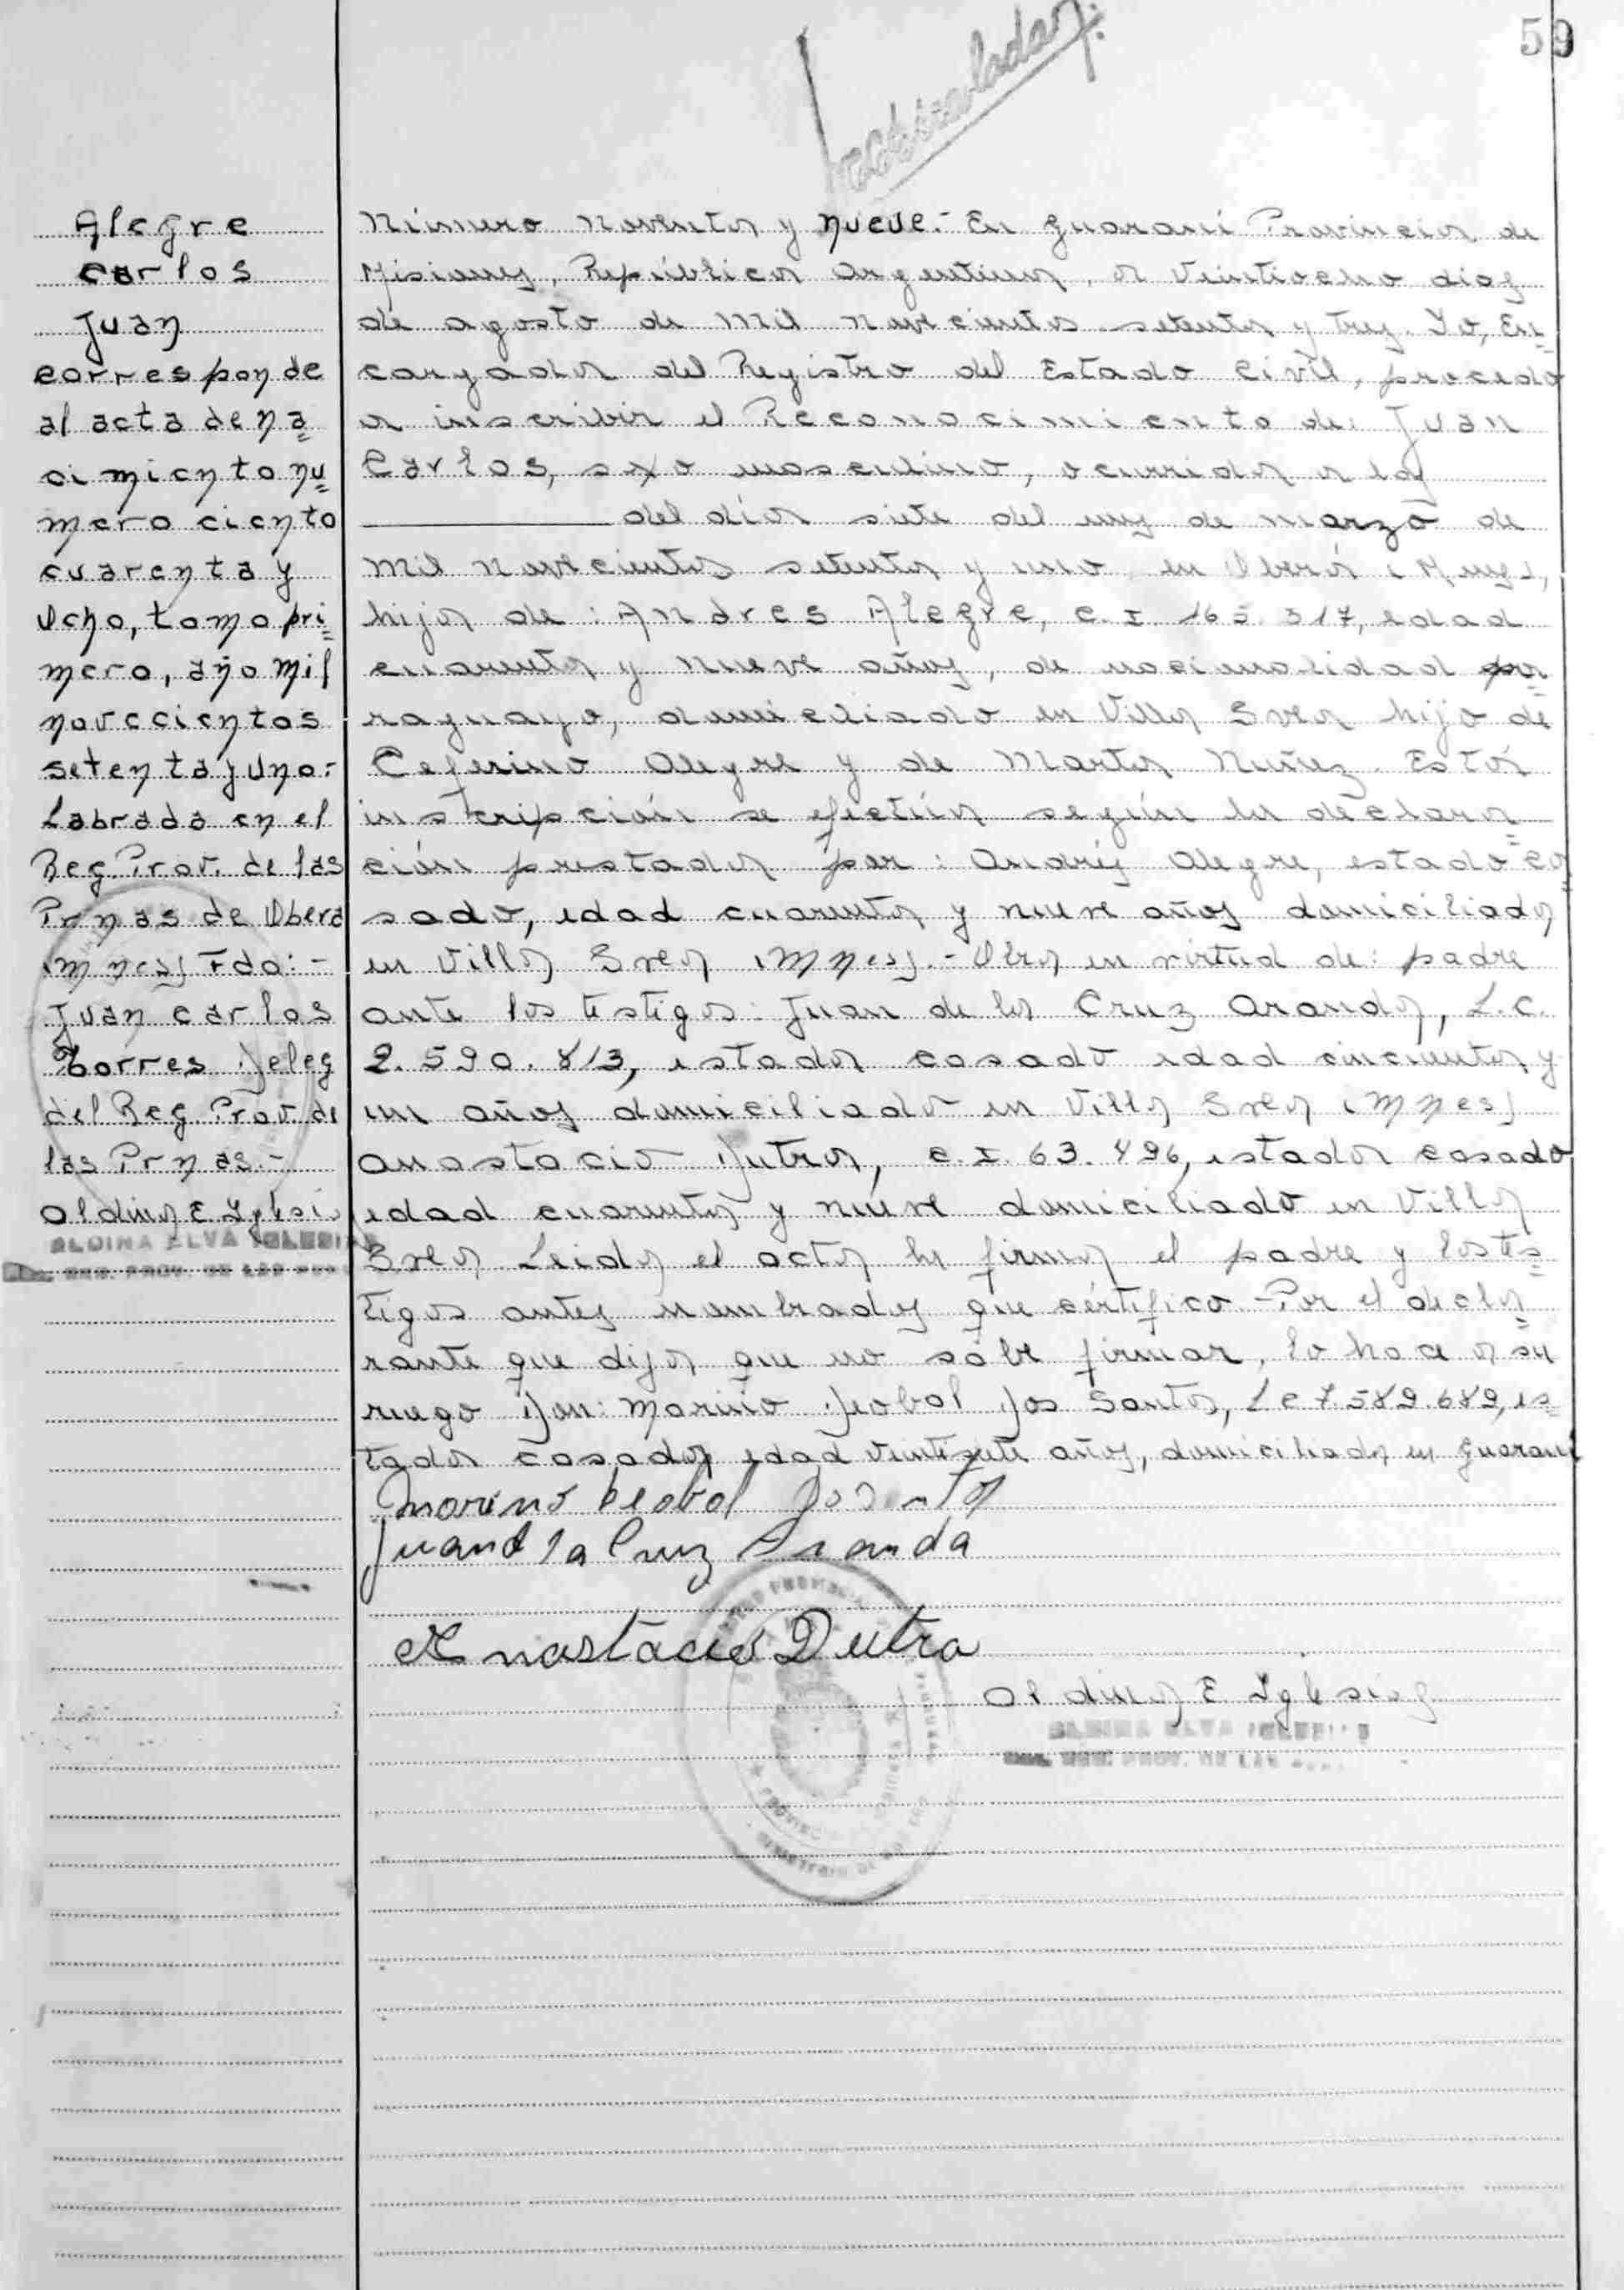 59
Alegre
Carlos
Juan
corresponde
al acta de na
cimiento nu
mero ciento
cuarenta y
Ocho, tomo pri
mero, año mil
novecientos
setenta y uno.-
Labrada en el
Reg. Prov. de las
Prnas de Oberá
(Mnes) Fdo:-
Juan Carlos
Torres Deleg
del Reg. Prov. de
las Prnas.-
Aldina E. Iglesi
ALDINA ELVA IGLESIAS
REG. PROV. DE LAS
Número Noventa y nueve.- En Guaraní Provincia de
Misiones, República Argentina, a Veintiocho días
de agosto de Mil Novecientos setenta y tres. Yo, En
cargada del Registro del Estado Civil, procedo
a inscribir el Reconocimiento de: Juan
Carlos, sexo masculino, ocurrida a las
del día siete del mes de marzo de
Mil Novecientos setenta y uno en Oberá (Mnes),
hijo de: Andres Alegre, C.I. 163.317, edad
cuarenta y nueve años, de nacionalidad pa
raguayo, domiciliado en Villa Svea hijo de
Ceferino Alegre y de Marta Nuñez. Esta
inscripción se efectúa según la declara
ción prestada por: Andrés Alegre, estado ca
sado, edad cuarenta y nueve años domiciliado
en Villa Svea (Mnes).- Obra en virtud de: padre
ante los testigos: Juan de la Cruz Aranda, L.C.
2.590.813, estado casado edad cincuenta y
un años domiciliado en Villa Svea (Mnes)
Anastacio Dutra, C.I. 63.496, estado casado
edad cuarenta y nueve domiciliado en Villa
Svea Leida el acta la firma el padre y los tes
tigos antes nombrados que certifico.- Por el decla
rante que dijo que no sabe firmar, lo hace a su
ruego Don: Marino Deobal Dos Santos, L.C 7.589.689, es
tado casado edad veintisiete años, domiciliado en Guaraní
Marino Deobal
Juan d la Cruz Aranda
Anastacio Dutra
Aldina E. Iglesias
ALDINA ELVA IGLESIAS
REG. PROV. DE LAS